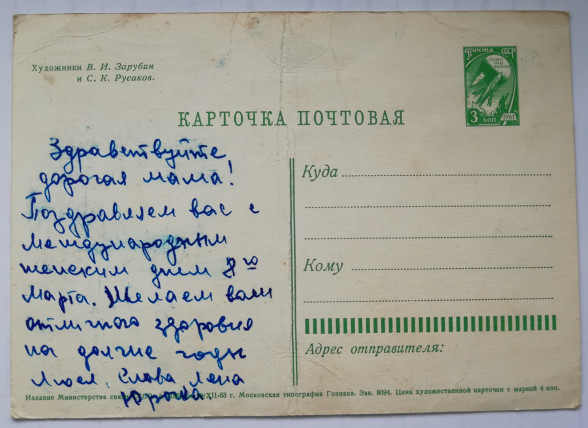 Художники В. И. Зарубин
и С. К. Русаков.
ПОЧТА СССР
3 КОП
1961
КАРТОЧКА ПОЧТОВАЯ
Здравствуйте,
дорогая мама!
Поздравляем вас с
международным
женским днем 8го
Марта. Желаем вам
отличного здоровия
на долгие годы
Люся, Слава Лена
Юрочка
Куда
Кому
Адрес отправителя:
Издание Министерства связи XII-63 г. Московская типография Гознака. Зак. 8094. Цена художественной карточки с маркой 4 коп.